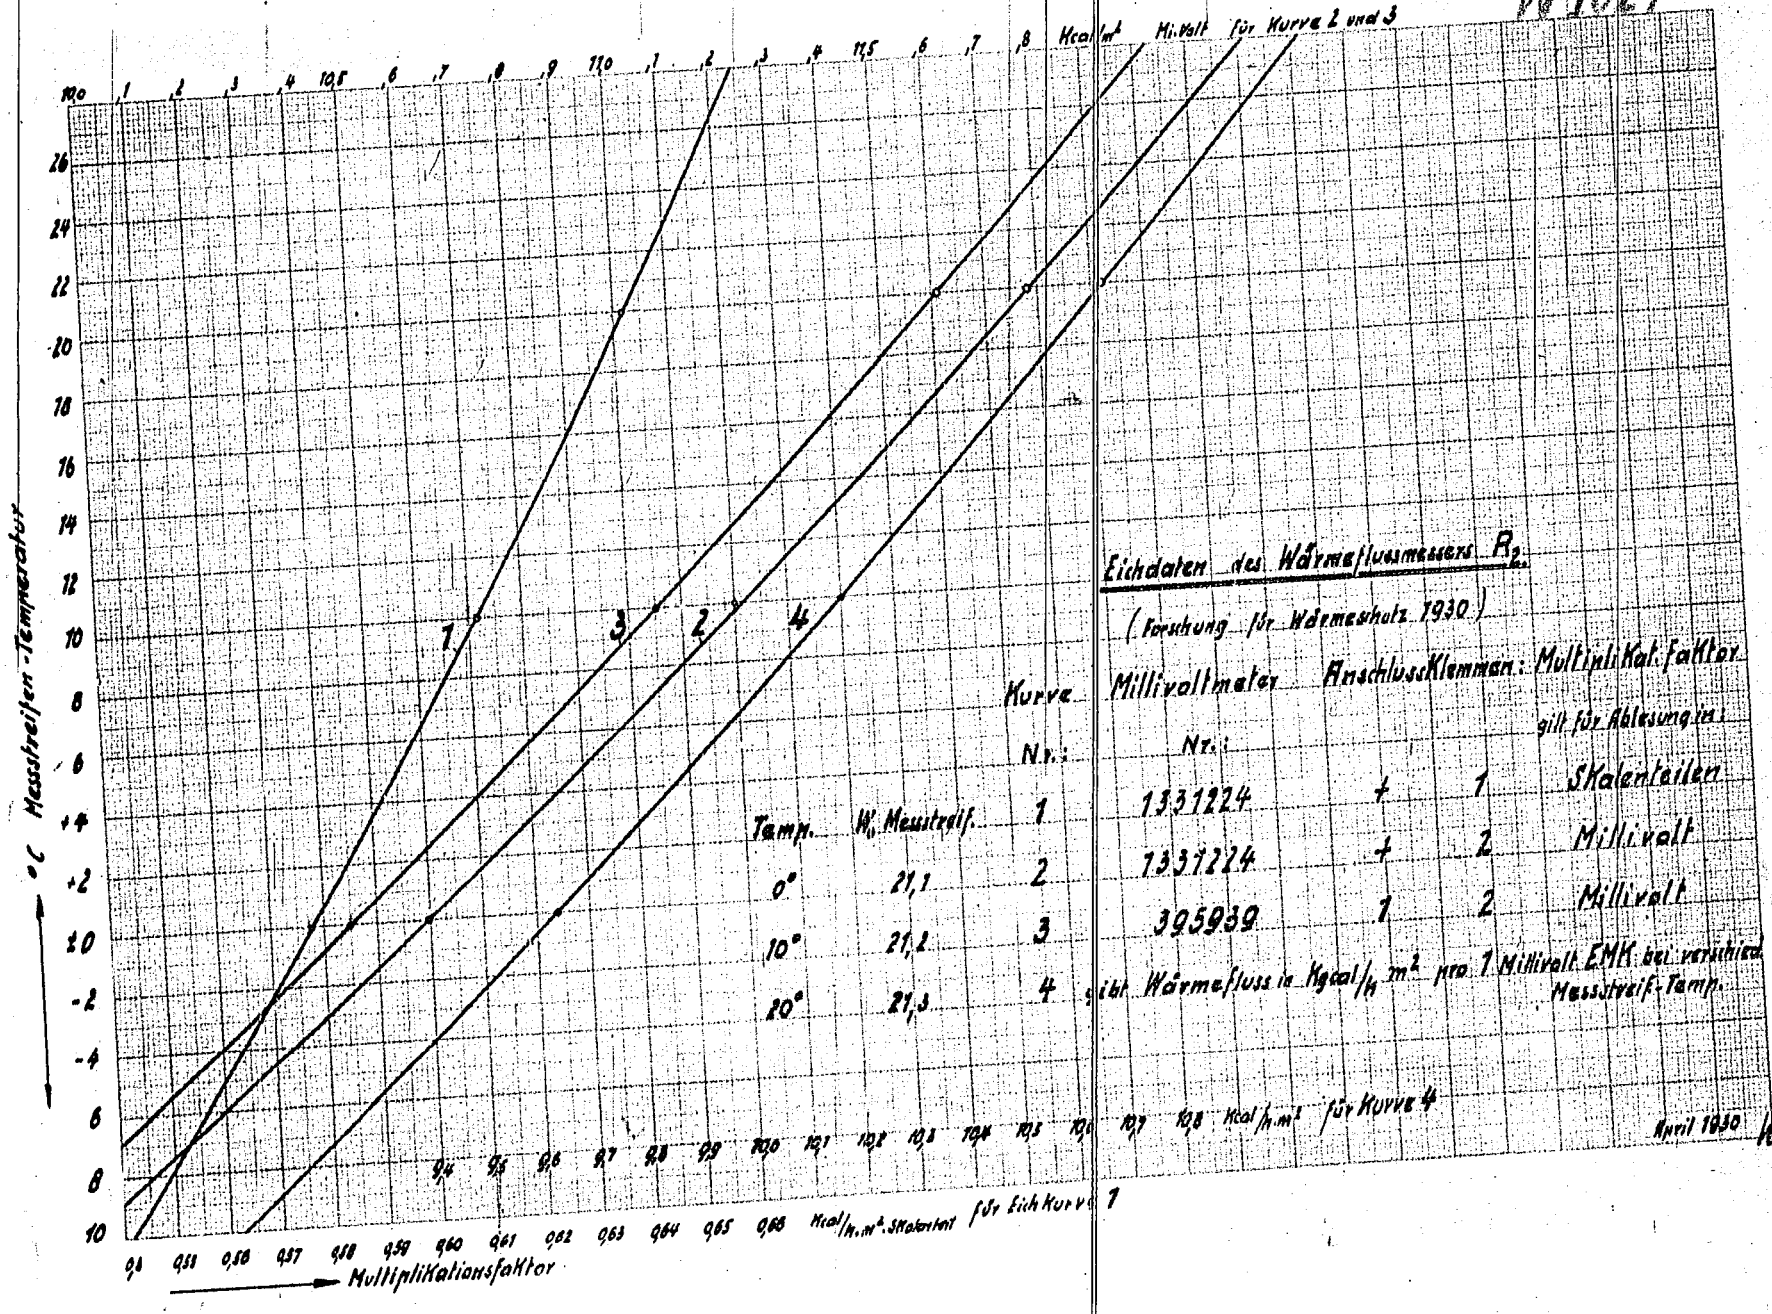 10,0 ,1 ,2 ,3 ,4 10,5 ,6 ,7 ,8 ,9 11,0 ,1 ,2 ,3 ,4 11,5 ,6 ,7 ,8 Kcal/m² Mi.Volt für Kurve 2 und 3
26
24
22
20
18
16
14
12
10
8
6
+4
+2
±0
-2
-4
6
8
10
°C Messstreifen-Temperatur
1 3 2 4
Eichdaten des Wärmeflussmessers R₂.
(Forschung für Wärmeschutz 1930)
Kurve Millivoltmeter AnschlussKlemmen: Multiplikat.faktor
Nr.: Nr.: gilt für Ablesung in:
Temp. W. Messtreif. 1 1331224 + 1 Skalenteilen
0° 21,1 2 1331224 + 2 Millivolt
10° 21,2 3 395939 1 2 Millivolt
20° 21,3 4 gibt Wärmefluss in Kgcal/h m² pro 1 Millivolt EMK bei verschied.
Messstreif-Temp.
9,4 9,5 9,6 9,7 9,8 9,9 10,0 10,1 10,2 10,3 10,4 10,5 10,6 10,7 10,8 Kcal/h.m² für Kurve 4
April 1930
0,55 0,56 0,57 0,58 0,59 0,60 0,61 0,62 0,63 0,64 0,65 0,66 Kcal/h.m².Skalenteil für Eichkurve 1
Multiplikationsfaktor